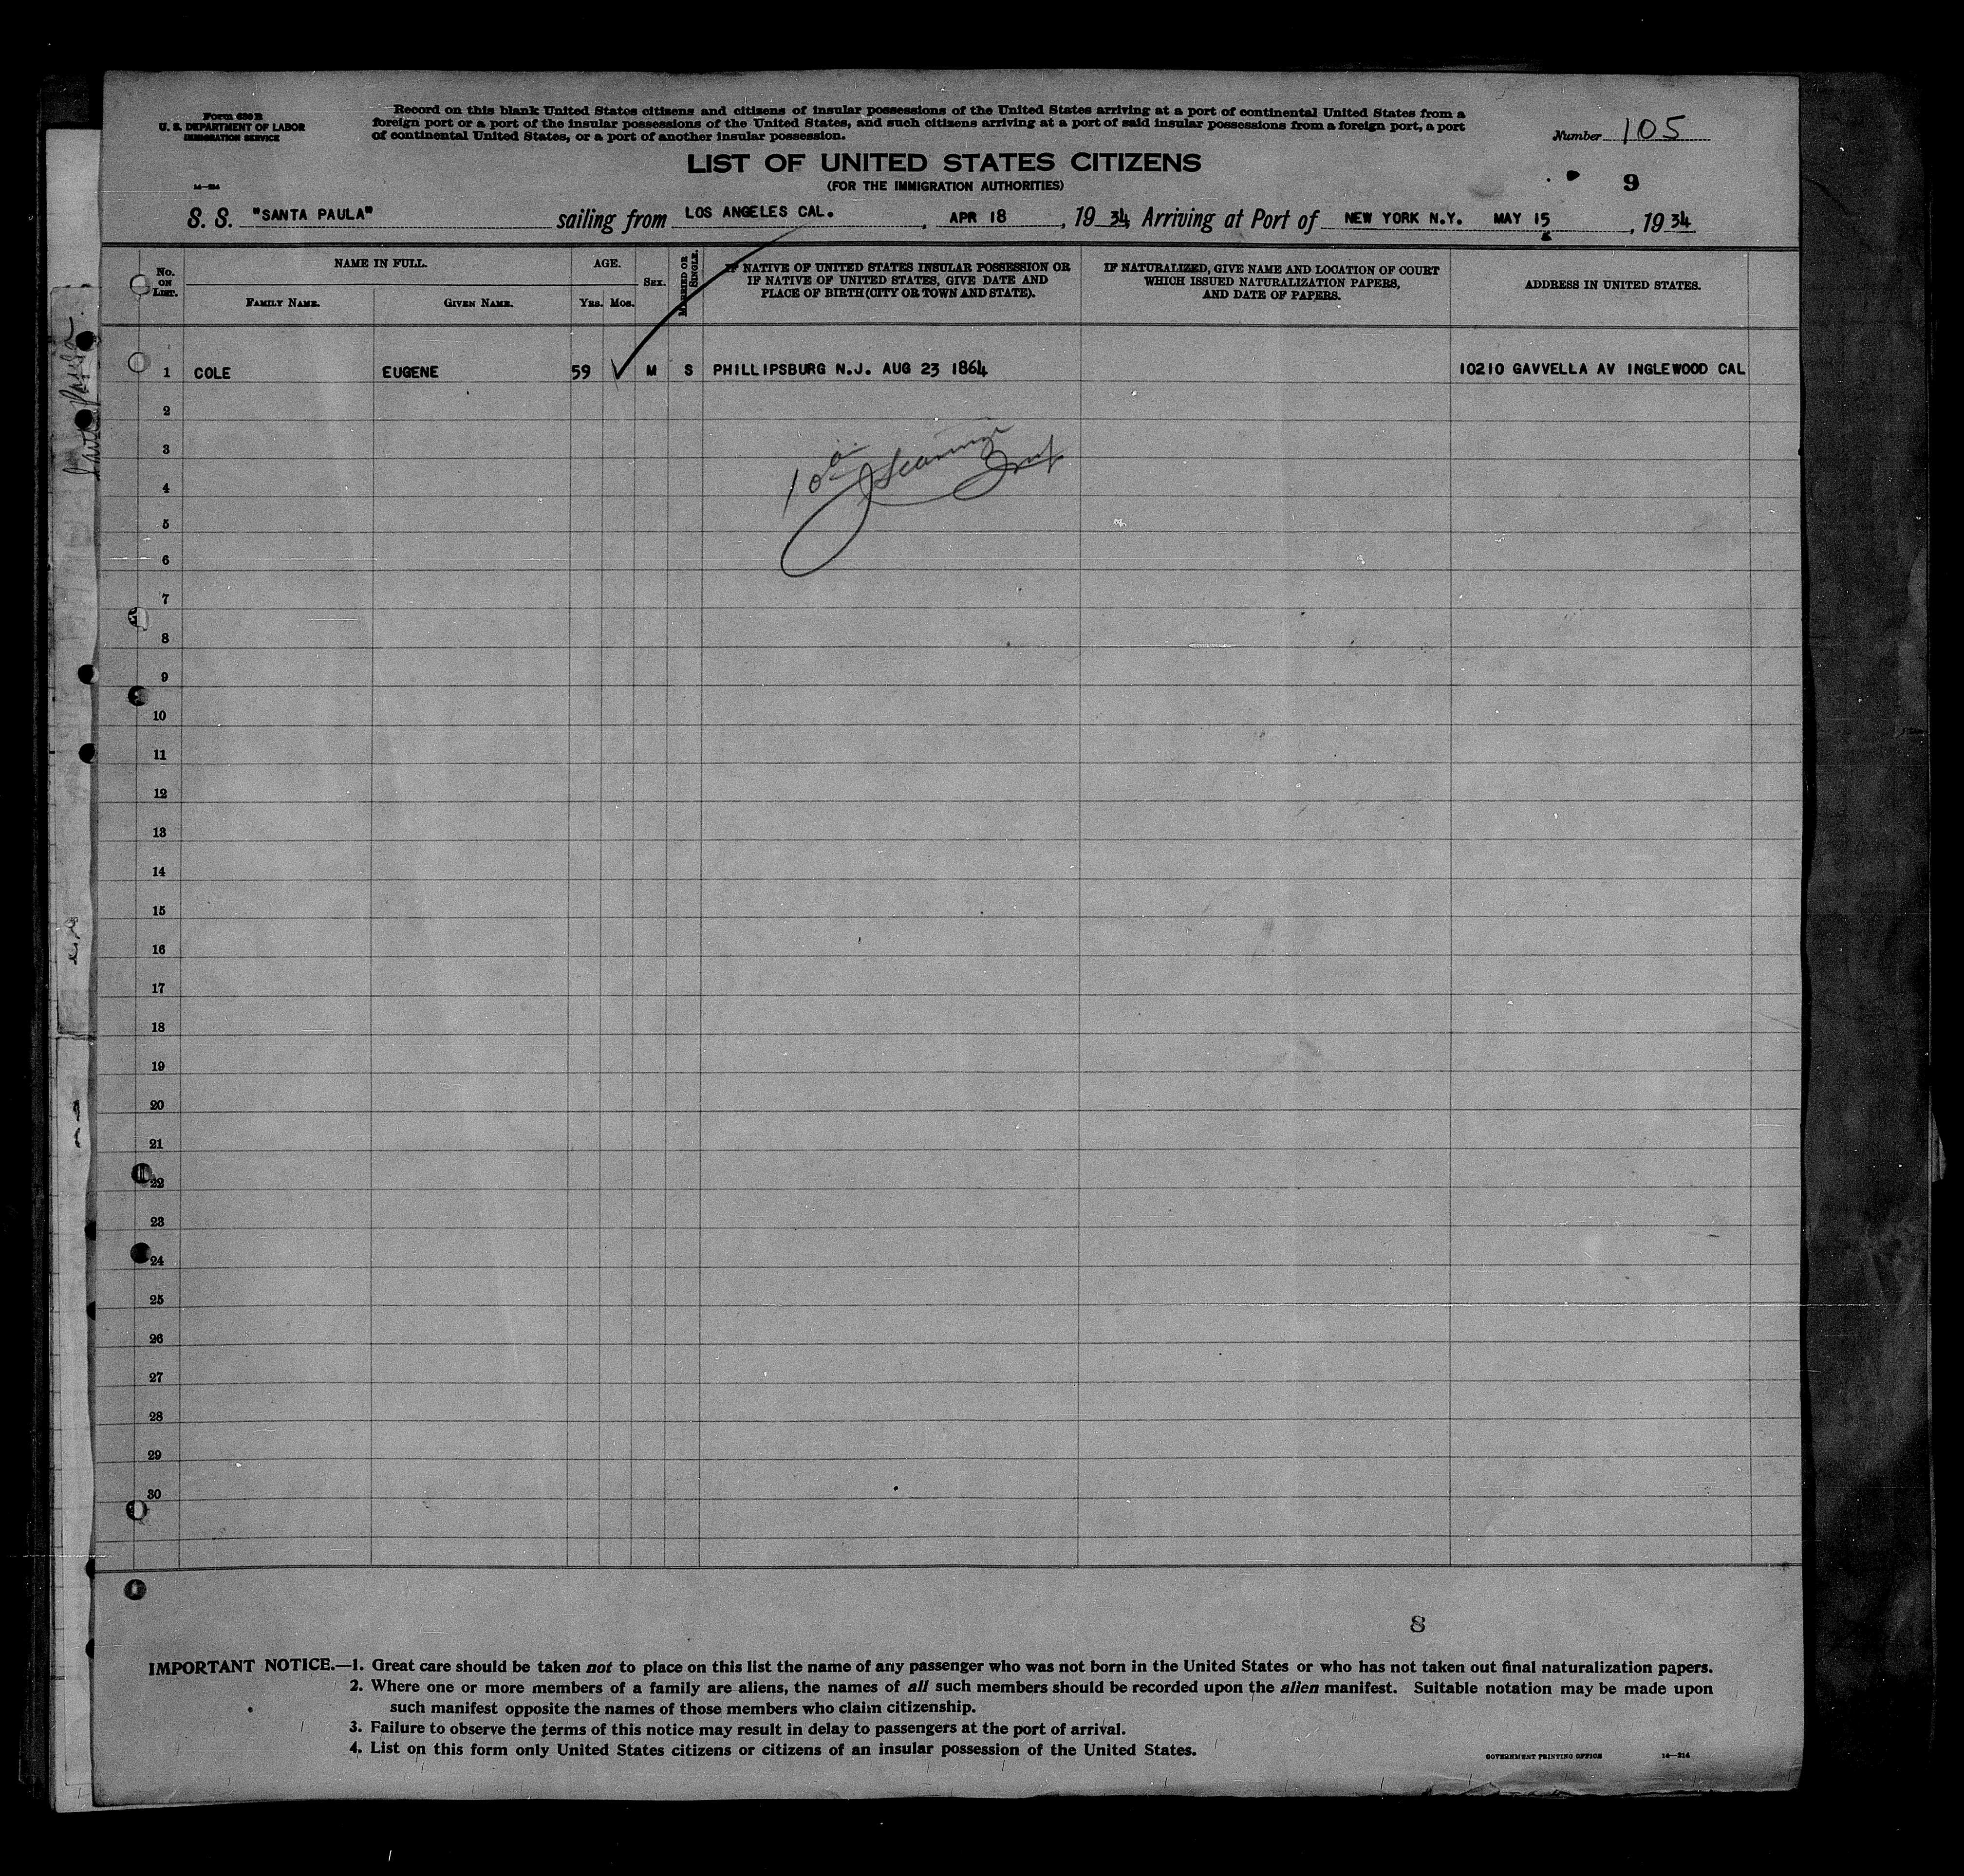 Form 630 B
U. S. DEPARTMENT OF LABOR
IMMIGRATION SERVICE
Record on this blank United States citizens and citizens of insular possessions of the United States arriving at a port of continental United States from a
foreign port or a port of the insular possessions of the United States, and such citizens arriving at a port of said insular possessions from a foreign port, a port
of continental United States, or a port of another insular possession.
Number 105
LIST OF UNITED STATES CITIZENS
(FOR THE IMMIGRATION AUTHORITIES)
14—214
9
S. S. "SANTA PAULA" sailing from LOS ANGELES CAL. , APR 18 , 19 34, Arriving at Port of NEW YORK N.Y. MAY 15 , 19 34
No. ON LIST.
NAME IN FULL.
FAMILY NAME. GIVEN NAME.
AGE.
YRS. MOS.
SEX.
MARRIED OR SINGLE.
IF NATIVE OF UNITED STATES INSULAR POSSESSION OR
IF NATIVE OF UNITED STATES, GIVE DATE AND
PLACE OF BIRTH (CITY OR TOWN AND STATE).
IF NATURALIZED, GIVE NAME AND LOCATION OF COURT
WHICH ISSUED NATURALIZATION PAPERS,
AND DATE OF PAPERS.
ADDRESS IN UNITED STATES.
1 COLE EUGENE 59 M S PHILLIPSBURG N.J. AUG 23 1864 10210 GAVVELLA AV INGLEWOOD CAL
2
3
4
5
6
7
8
9
10
11
12
13
14
15
16
17
18
19
20
21
22
23
24
25
26
27
28
29
30
8
IMPORTANT NOTICE.—1. Great care should be taken not to place on this list the name of any passenger who was not born in the United States or who has not taken out final naturalization papers.
2. Where one or more members of a family are aliens, the names of all such members should be recorded upon the alien manifest. Suitable notation may be made upon
such manifest opposite the names of those members who claim citizenship.
3. Failure to observe the terms of this notice may result in delay to passengers at the port of arrival.
4. List on this form only United States citizens or citizens of an insular possession of the United States.
GOVERNMENT PRINTING OFFICE 14—214